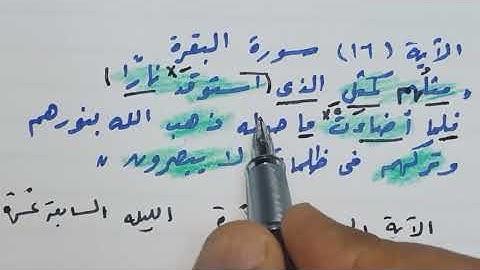 الآية (١٦) سورة البقرة
مثلهم كمثل الذى (استوقد نارًا)
فلما أضاءت ما حوله ذهب الله بنورهم
وتركهم فى ظلمات لا يبصرون
الآية الليله السابعة عشرة